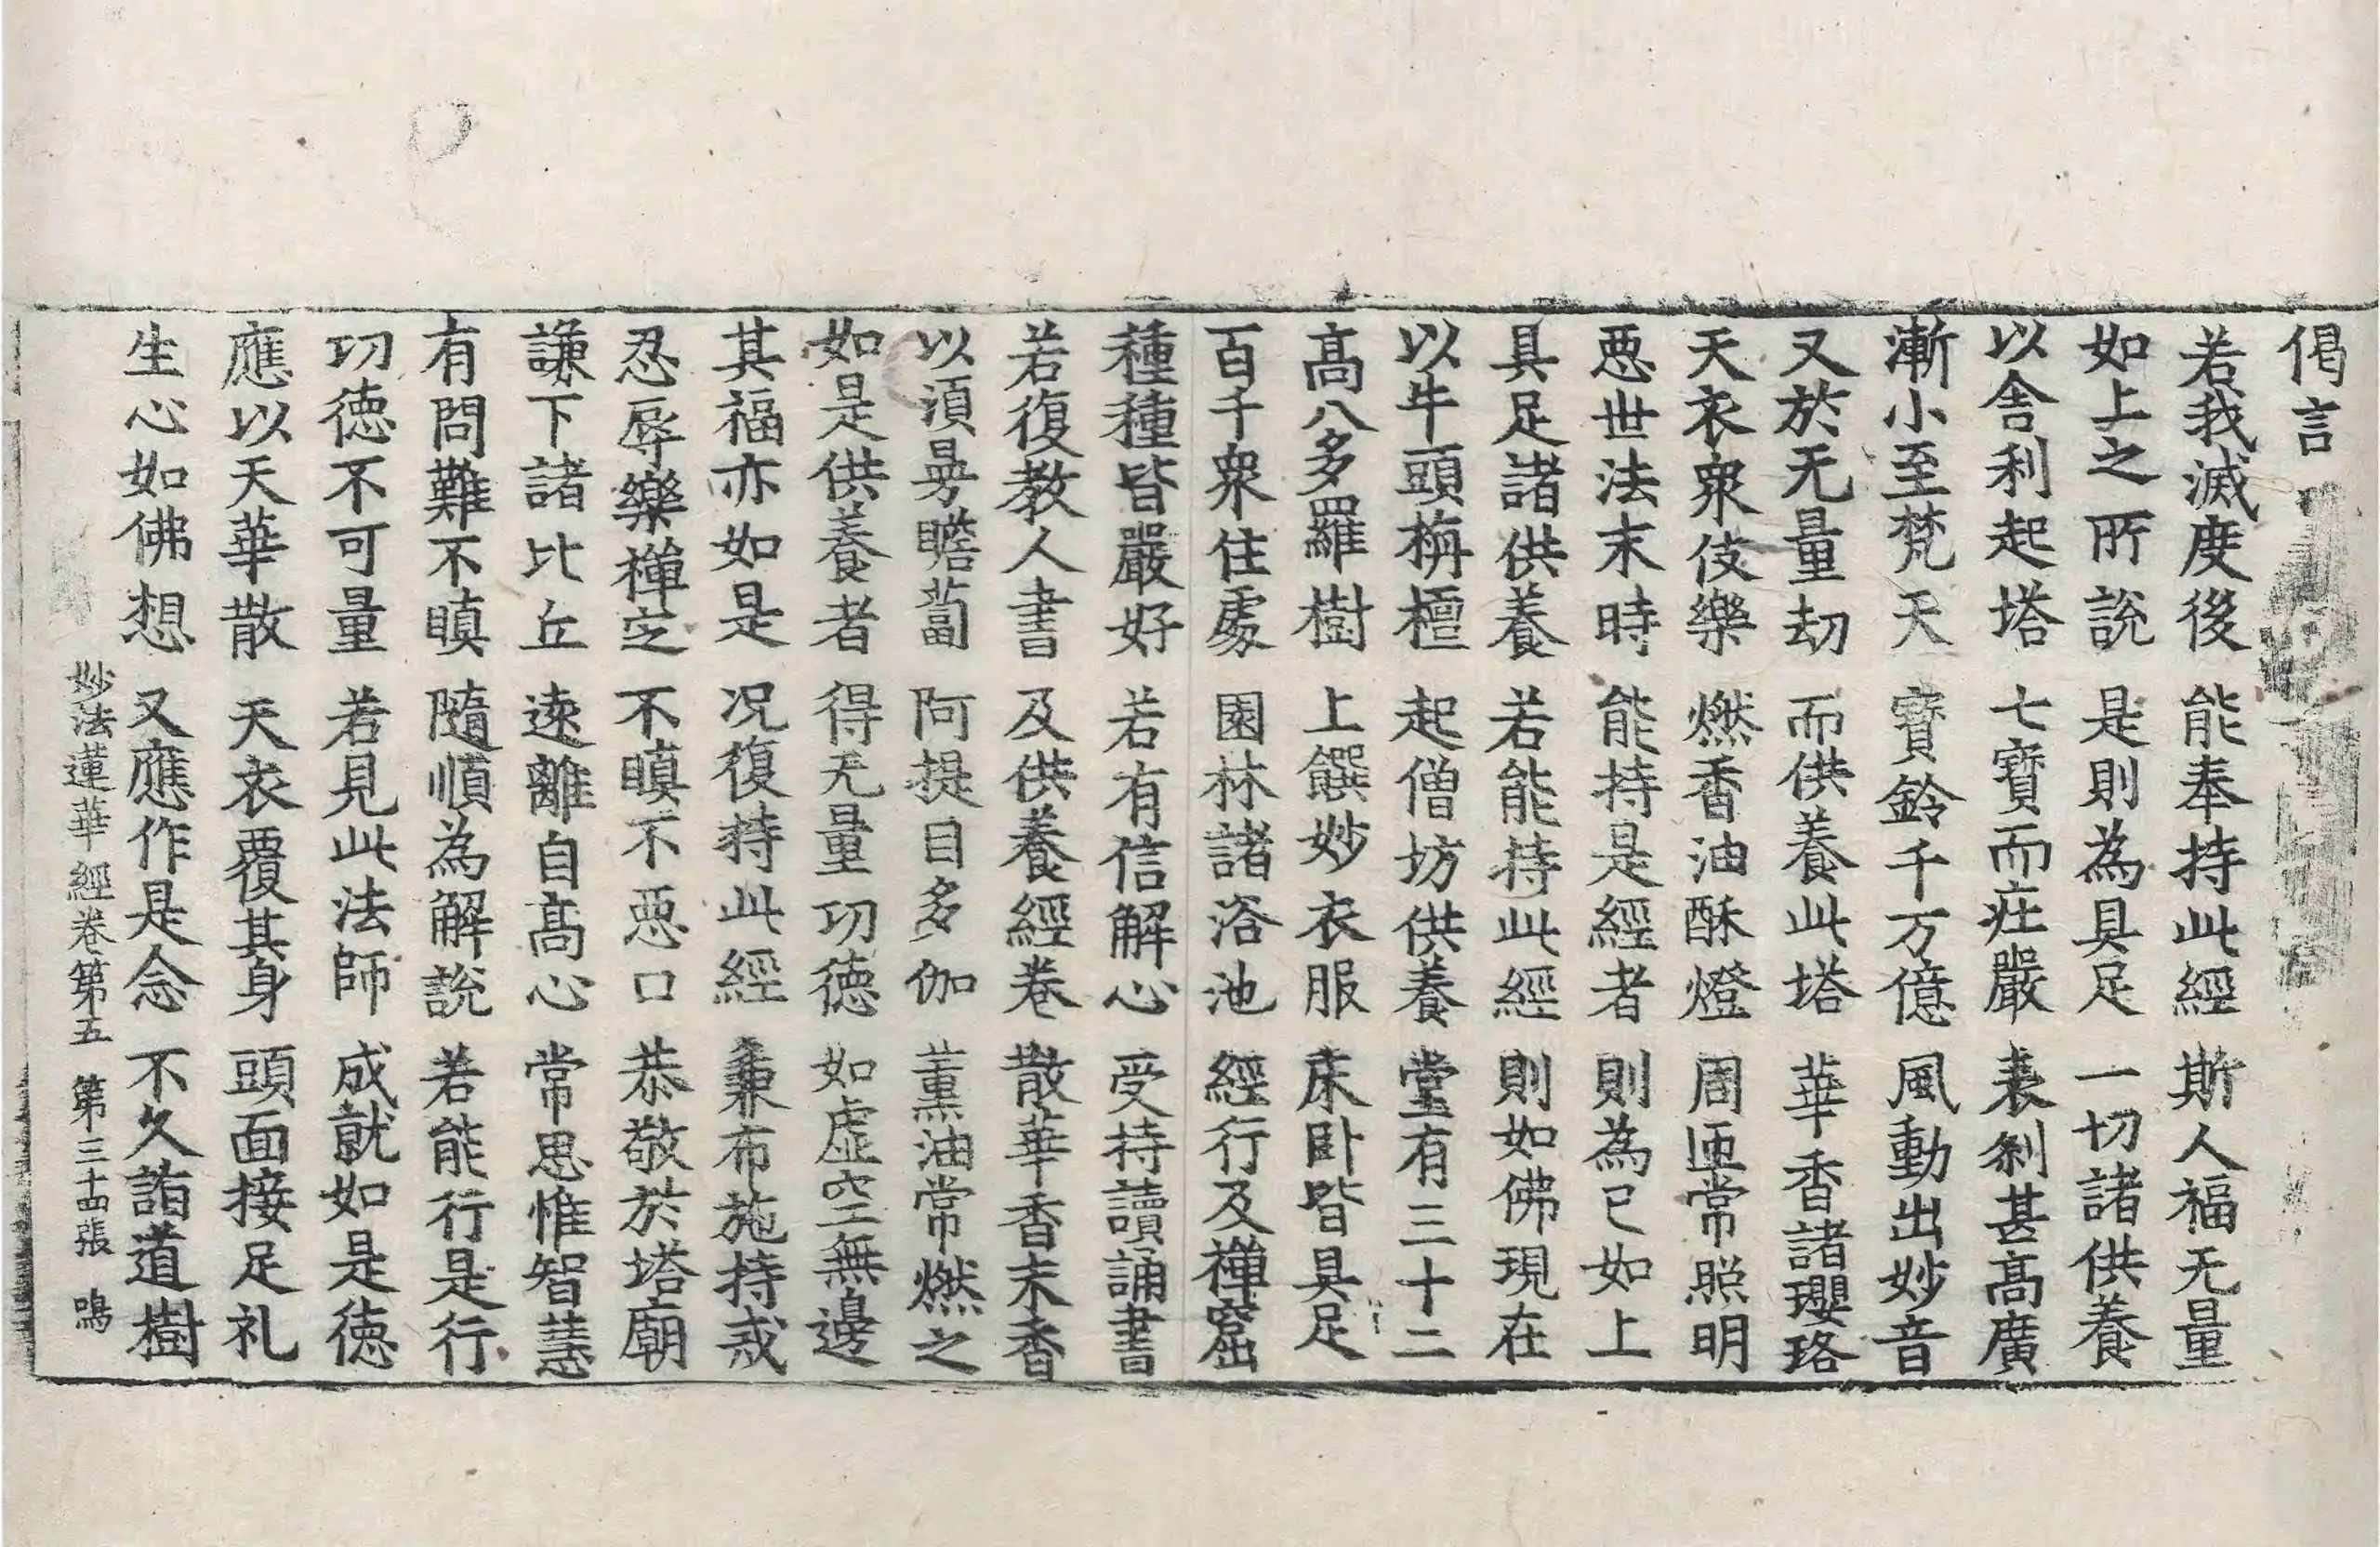 偈言
若我滅度後　能奉持此經　斯人福无量
如上之所說　是則為具足　一切諸供養
以舍利起塔　七寶而莊嚴　表剎甚髙廣
漸小至梵天　寶鈴千万億　風動出妙音
又於无量劫　而供養此塔　華香諸瓔珞
天衣衆伎樂　燃香油酥燈　周匝常照明
惡世法末時　能持是經者　則為已如上
具足諸供養　若能持此經　則如佛現在
以牛頭栴檀　起僧坊供養　堂有三十二
髙八多羅樹　上饌妙衣服　床臥皆具足
百千衆住處　園林諸浴池　經行及禪窟
種種皆嚴好　若有信解心　受持讀誦書
若復教人書　及供養經卷　散華香末香
以須曼瞻蔔　阿提目多伽　薰油常燃之
如是供養者　得无量功德　如虛空無邊
其福亦如是　況復持此經　兼布施持戒
忍辱樂禪定　不瞋不惡口　恭敬於塔廟
謙下諸比丘　遠離自髙心　常思惟智慧
有問難不瞋　隨順為解說　若能行是行
功德不可量　若見此法師　成就如是德
應以天華散　天衣覆其身　頭面接足礼
生心如佛想　又應作是念　不久詣道樹
妙法蓮華經卷第五　第三十四張　鳴